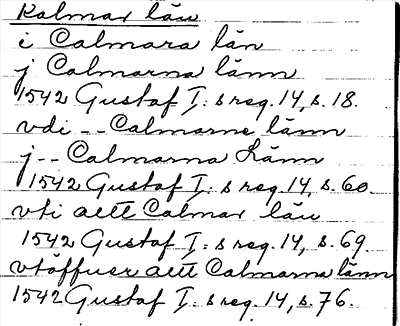 Kalmar län
i Calmara län
j Calmarna länn
1542 Gustaf I:s reg. 14, s. 18.
vdi -- Calmarne länn
j -- Calmarna Länn
1542 Gustaf I:s reg. 14, s. 60.
vti alltt Calmar län
1542 Gustaf I:s reg. 14, s. 69.
vtöffuer altt Calmarna länn
1542 Gustaf I:s reg. 14, s. 76.